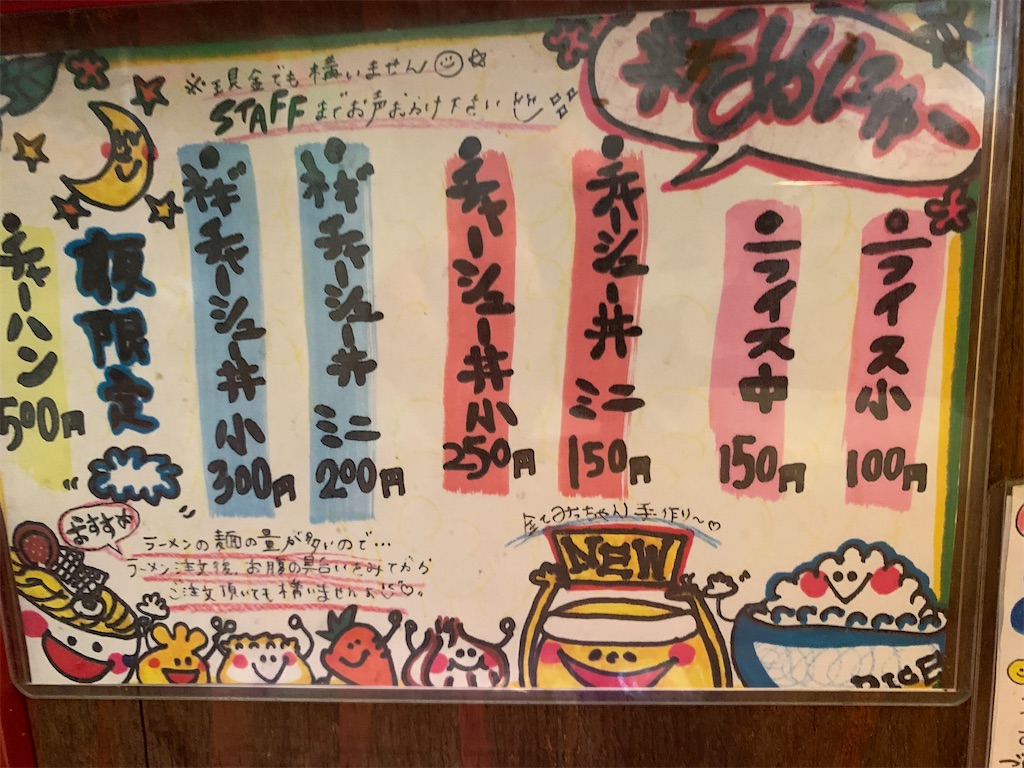 ※現金でも構いません
STAFFまでお声おかけ下さい
米をめにゅー
ライス小 100円
ライス中 150円
チャーシュー丼 ミニ 150円
チャーシュー丼 小 250円
ネギチャーシュー丼 ミニ 200円
ネギチャーシュー丼 小 300円
夜限定
チャーハン 500円
おすすめ
ラーメンの麺の量が多いので…
ラーメン注文後、お腹の具合いをみてから
ご注文頂いても構いませんよ♡。
手作り〜♡
NEW
RICE